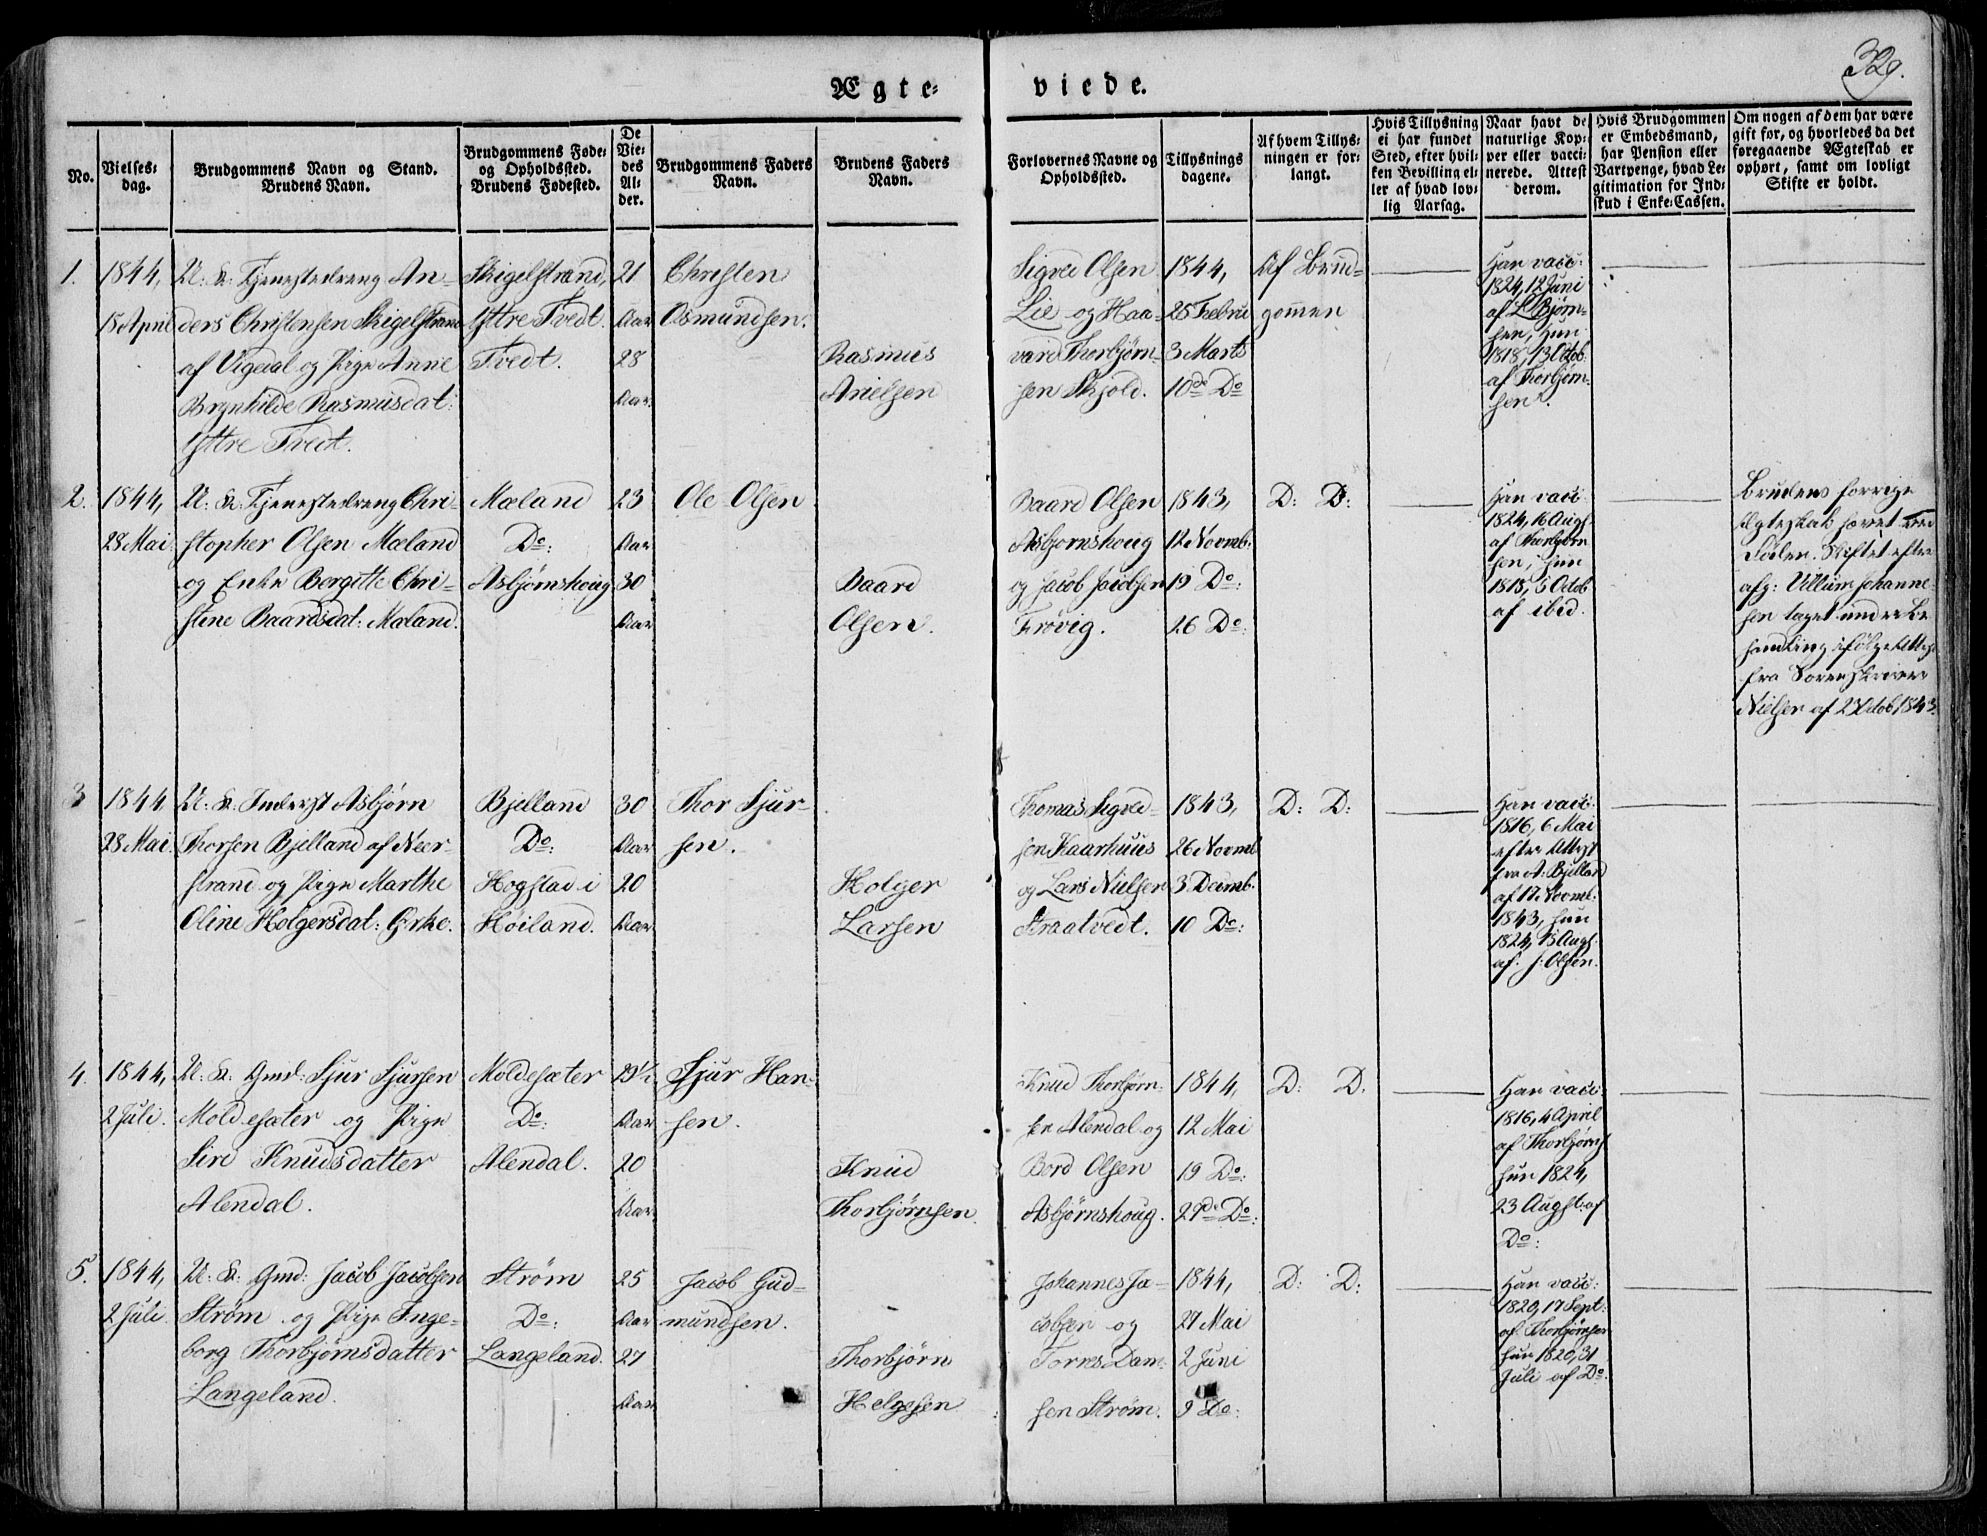 329.
Ægte-
viede.
No.
Vielses-
dag.
Brudgommens Navn og Stand.
Brudens Navn.
Brudgommens Føde-
og Opholdssted.
Brudens Fødested.
De
Vie-
des
Al-
der.
Brudgommens Faders
Navn.
Brudens Faders
Navn.
Forlovernes Navne og
Opholdssted.
Tillysnings
dagene.
Af hvem Tillys-
ningen er for-
langt.
Hvis Tillysning
ei har fundet
Sted, efter hvil-
ken Bevilling el-
ler af hvad lov-
lig Aarsag.
Naar havt de
naturlige Kop-
per eller vacci-
nerede. Attest
derom.
Hvis Brudgommen
er Embedsmand,
har Pension eller
Vartpenge, hvad Le-
gitimation for Ind-
skud i Enke-Cassen.
Om nogen af dem har være
gift før, og hvorledes da det
foregaaende Ægteskab er
ophørt, samt om lovligt
Skifte er holdt.
1.
1844,
15 April
U: K: Tjenestedreng An-
ders Christensen Skigelstrand
af Vigedal og Pige Anne
Brynhilde Rasmusdat:
Yttre Tvedt.
Skigelstrand,
Yttre Tvedt.
Tvedt.
21
Aar
28
Aar.
Christen
Osmundsen.
Rasmus
Arielsen
Sigved Olsen
Lie og Haa-
vard Thorbjørn-
sen Skjold.
1844,
25 Febru
3 Marts
10de Do
Af Brud-
gommen
Han vacc:
1824, 12 Juni
af L. Bjørn-
sen, hun
1818, 13 Octob.
af Thorbjørn-
sen.
2.
1844,
28 Mai
U: K: Tjenestedreng Chri-
stopher Olsen Mæland
og Enke Borgitte Chri-
stine Baardsdat: Mæland.
Mæland
Do:
Asbjørnshoug
23
Aar
30
Aar
Ole Olsen
Baard
Olsen.
Baard Olsen
Asbjørnshoug
og Jacob Jacobsen
Frøvig.
1843,
12 Novemb:
19 Do:
26 Do:
D: D:
Han vacc:
1824, 16 Augs.
af Thorbjørn
sen, hun
1818, 5 Octob
af ibid.
Brudens forrige
Ægteskab hævet ved
Døden. Skiftet efter
afg: Villum Johanne-
sen taget under Be
handling ifølge Attest
fra Sorenskriver
Nielsen af 23 Octob 1843.
3
1844
28 Mai
U: K: Inderst Asbjørn
Thorsen Bjelland af Neer-
strand og Pige Marthe
Oline Holgersdat: Ørke.
Bjelland
Do:
Hogstad i
Høiland.
30
Aar
20
Aar
Thor Sjur-
sen.
Holger
Larsen
Thomas Sigved-
sen Kaarhuus
og Lars Nielsen
Straatvedt.
1843,
26 Novemb
3 Decemb.
10 Do:
D: D:
Han vacc:
1816, 6 Mai
efter Attest
fra A: Bjelland
af 17 Novemb:
1843, hun
1824, 15 Augs.
af J: Olsen.
4.
1844,
2 Juli.
U: K: Gmd: Sjur Sjursen
Moldesæter og Pige
Siri Knudsdatter
Alendal.
Moldesæter
Do:
Alendal.
29½
Aar
20
Aar
Sjur Han-
sen.
Knud
Thorbjørnsen.
Knud Thorbjørn-
sen Alendal og
Bord Olsen
Asbjørnshoug.
1844,
12 Mai
19 Do:
27de Do:
D: D.
Han vacc:
1816, 4 April
af Thorbjørns
hun 1824,
23 Augst. af
Do:
5.
1844,
2 Juli.
U: K: Gmd: Jacob Jacobsen
Strøm og Pige Inge-
borg Thorbjørnsdatter
Langeland.
Strøm
Do:
Langeland.
25
Aar
27
Aar
Jacob Gud-
mundsen.
Thorbjørn
Helgesen
Johannes Ja-
cobsen og
Torres Dam-
sen Strøm.
1844,
27 Mai
2 Juni
9 Do:
D: D:
Han vacc:
1820, 17 Sept:
af Thorbjørnsen
hun 1820, 31
Juli af Do.